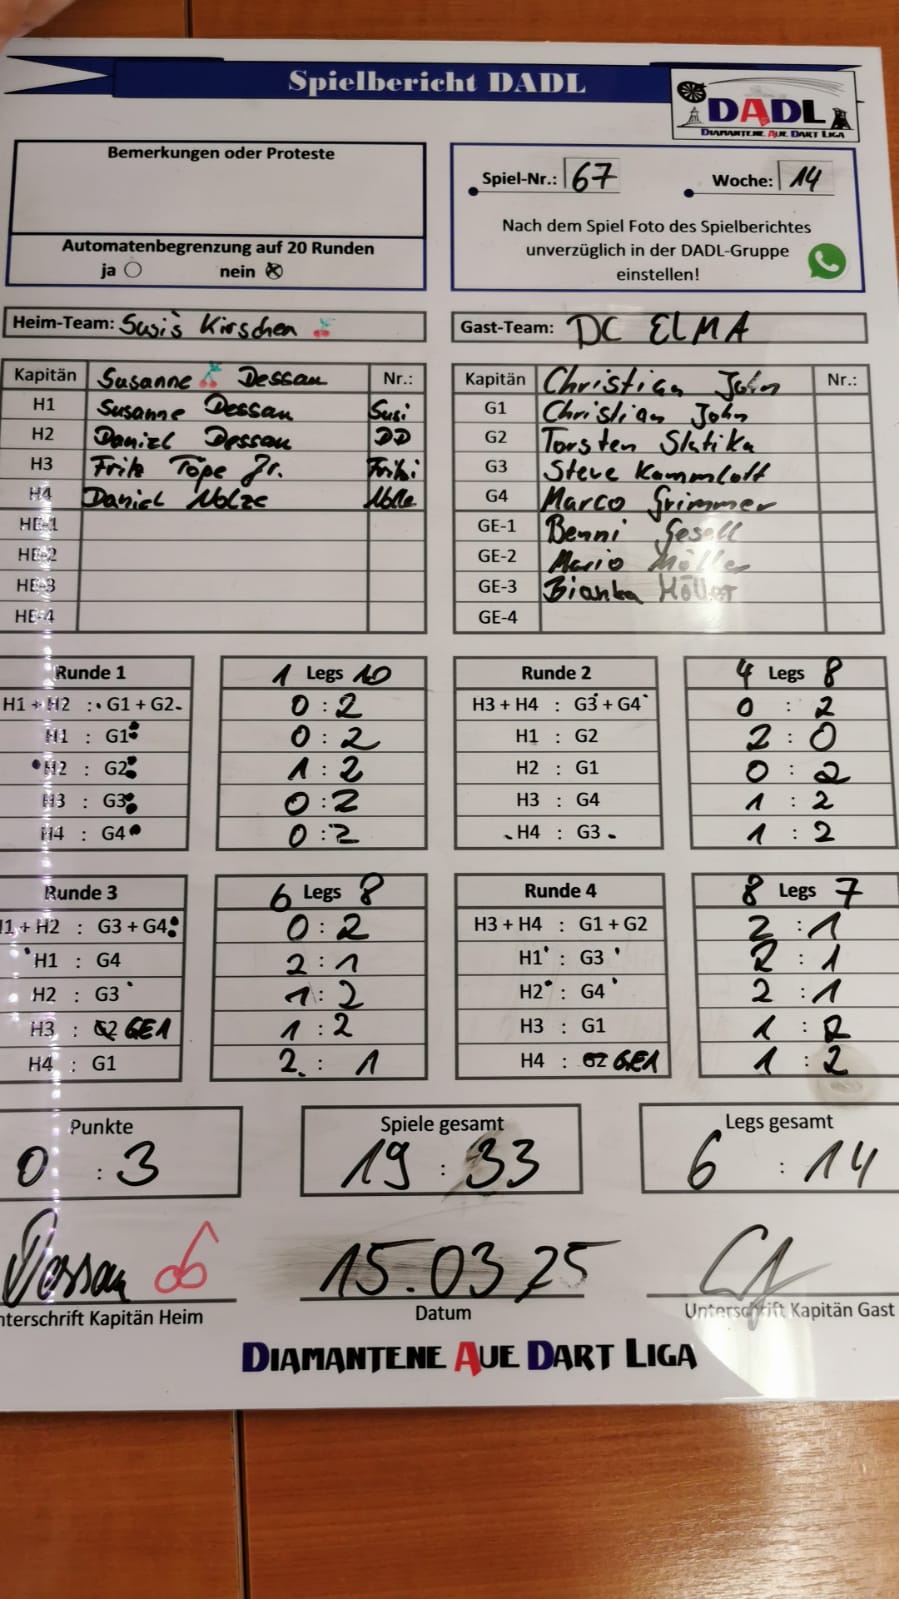 Spielbericht DADL
DADL
DIAMANTENE AUE DART LIGA
Bemerkungen oder Proteste
Automatenbegrenzung auf 20 Runden
ja nein
Spiel-Nr.: 67 Woche: 14
Nach dem Spiel Foto des Spielberichtes
unverzüglich in der DADL-Gruppe
einstellen!
Heim-Team: Susi's Kirschen
Gast-Team: DC ELMA
Kapitän Susanne Dessau Nr.:
H1 Susanne Dessau Susi
H2 Daniel Dessau DD
H3 Fritz Töpe Jr. Fritzi
H4 Daniel Nolze Nolle
HE-1
HE-2
HE-3
HE-4
Kapitän Christian John Nr.:
G1 Christian John
G2 Torsten Slatika
G3 Steve Kammlott
G4 Marco Grimmer
GE-1 Benni Gesell
GE-2 Mario Möller
GE-3 Bianka Möller
GE-4
Runde 1 1 Legs 10
H1 + H2 : G1 + G2 0 : 2
H1 : G1 0 : 2
H2 : G2 1 : 2
H3 : G3 0 : 2
H4 : G4 0 : 2
Runde 2 4 Legs 8
H3 + H4 : G3 + G4 0 : 2
H1 : G2 2 : 0
H2 : G1 0 : 2
H3 : G4 1 : 2
H4 : G3 1 : 2
Runde 3 6 Legs 8
H1 + H2 : G3 + G4 0 : 2
H1 : G4 2 : 1
H2 : G3 1 : 2
H3 : G2 GE1 1 : 2
H4 : G1 2 : 1
Runde 4 8 Legs 7
H3 + H4 : G1 + G2 2 : 1
H1 : G3 2 : 1
H2 : G4 2 : 1
H3 : G1 1 : 2
H4 : G2 GE1 1 : 2
Punkte
0 : 3
Spiele gesamt
19 : 33
Legs gesamt
6 : 14
Dessau
15.03.25
Unterschrift Kapitän Heim
Datum
Unterschrift Kapitän Gast
DIAMANTENE AUE DART LIGA